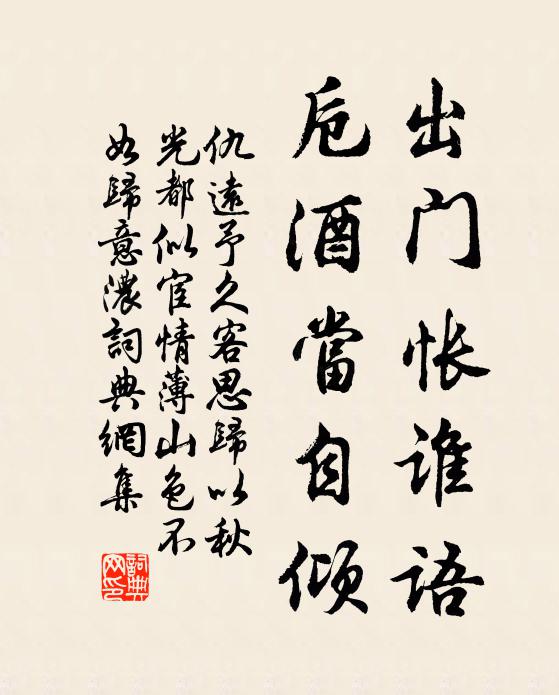 出门怅谁语
卮酒當自倾
仇遠予久客思歸以秋
光都似宦情薄山色不
如歸意濃詞典網集
詞典网印